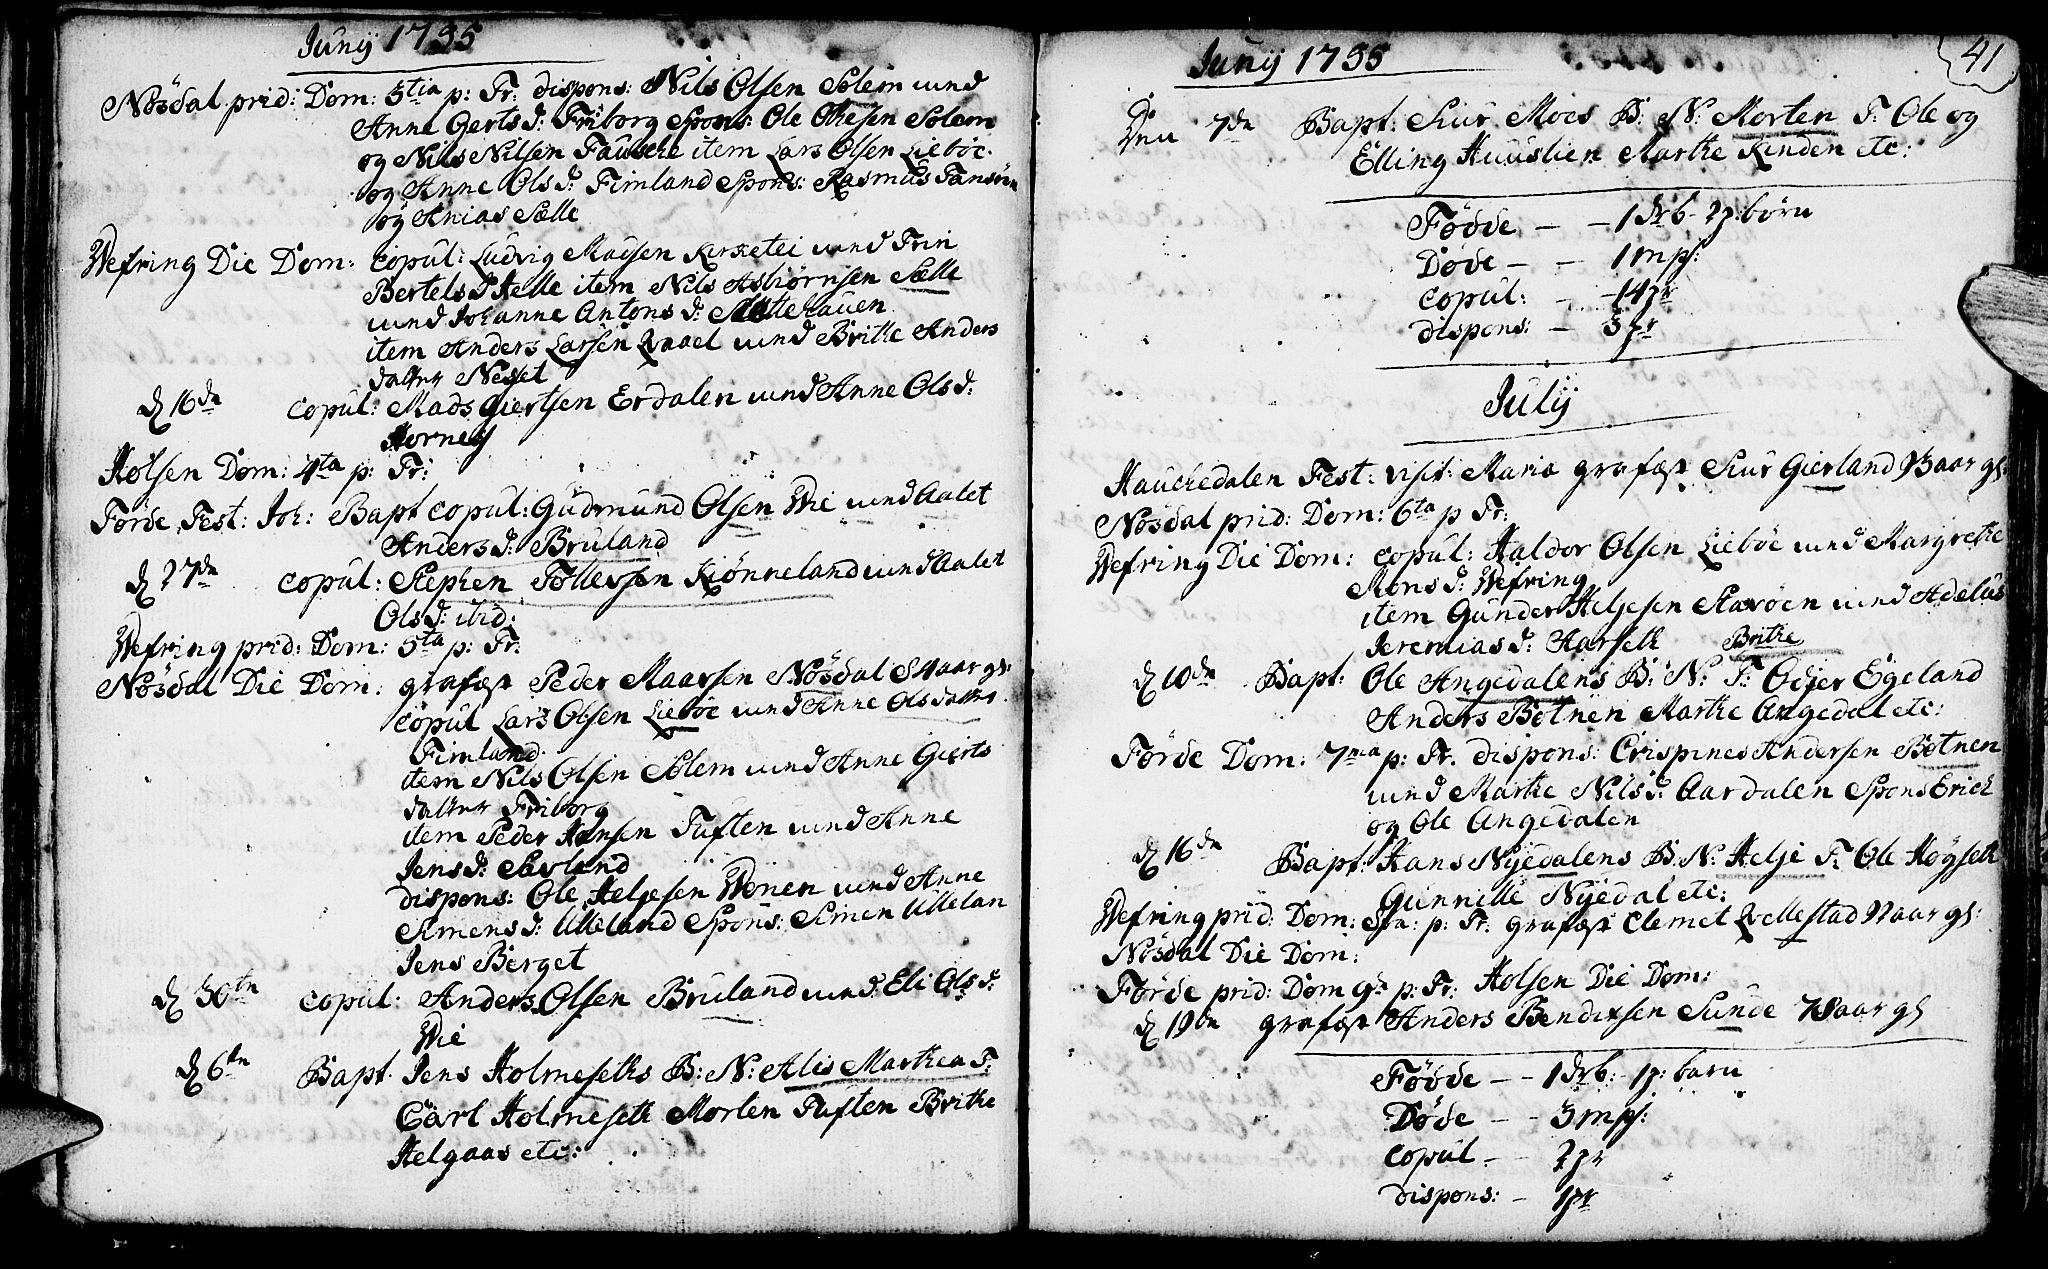 Junij 1735
Nösdal prid: Dom: 3tia p: Tr: dispons: Nils Olsen Solem und
Anne Gertsd: Friborg Spons: Ole Olsen Solem
og Nils Nilsen Fauske item Lars Olsen Lieböe
og Anne Olsd: Fimland Spons: Rasmus
og Anias Sælle
Wefring Die Dom: copul: Ludvig Madsen Kirketei und Trin
Bertelsd Helle item Nils Asbiörnsen Sælle
und Johanne Antonsd:
item Anders Larsen Qvaal und Brithe Anders
datter Nesset
d 16de copul: Mads Giertsen Erdalen und Anne Olsd:
Hornes
Holsen Dom: 4ta p: Tr:
Förde Fest: Joh: Bapt copul: Gudmund Olsen Wie und Aalet
Andersd: Bruland
d 27de copul: Stephen Tollevsen Kiönneland und Aalet
Olsd: ibid:
Wefring prid: Dom: 5ta p: Tr:
Nösdal Die Dom: grafæst Peder Maarsen Nösdal 84 aar gl:
copul Lars Olsen Lieböe und Anne Olsdatter
Fimland
item Nils Olsen Solem und Anne Gierts
datter Friborg
item Peder Hansen Tuften und Anne
Jensd: Savland
dispons: Ole Helgesen Wonen und Anne
Simensd: Ulleland Spons: Simen Ullelan
Jens Berget
d 30ten copul: Anders Olsen Bruland und Eli Olsd:
Wie
d 6ten Bapt. Jens Holmeseths B: N: Alis Marthea F:
Carl Holmeseth Morten Tuften Brithe
Helgaas etc:
Junij 1735
41
Den 7de Bapt: Siur Moes B: N: Morten F: Ole og
Elling Huuslien Marthe Kinden etc:
Födde – – 1 drb. 2 p: börn
Döde – – 1 mp:
copul: – – 14 pr
dispons: – 3 pr
Julij
Hauckedalen Fest: visit: Mariæ grafæst Siur Gierland 93 aar gl:
Nösdal prid: Dom: 6ta p Tr:
Wefring Die Dom: copul: Haldor Olsen Lieböe und Margrethe
Monsd: Wefring
item Gunder Helgesen Staröen und Adelus
Jeremiasd: Harseth Brithe
d 10de Bapt: Ole Angedalens B: N: F: Odjer Egeland
Anders Botnen Marthe Angedal etc:
Förde Dom: 7ma p: Tr. dispons: Crispines Andersen Botnen
und Marthe Nilsd: Aardalen Spons Erick
og Ole Angedalen
d 16de Bapt: Hans Nyedalens B: N: Helge F: Ole Höyseth
Gunnille Nyedal etc:
Wefring prid: Dom: 8va: p: Tr: grafæst Clemet Qvellestad aar gl:
Nösdal Die Dom:
Förde prid: Dom 9de p: Tr: Holsen Die Dom:
d 19de grafæst Anders Bendixsen Sunde 78 aar gl
Födde – – 1 drb: 1 p: barn
Döde – – 3 mp:
copul – – 2 pr
dispons: – 1 pr